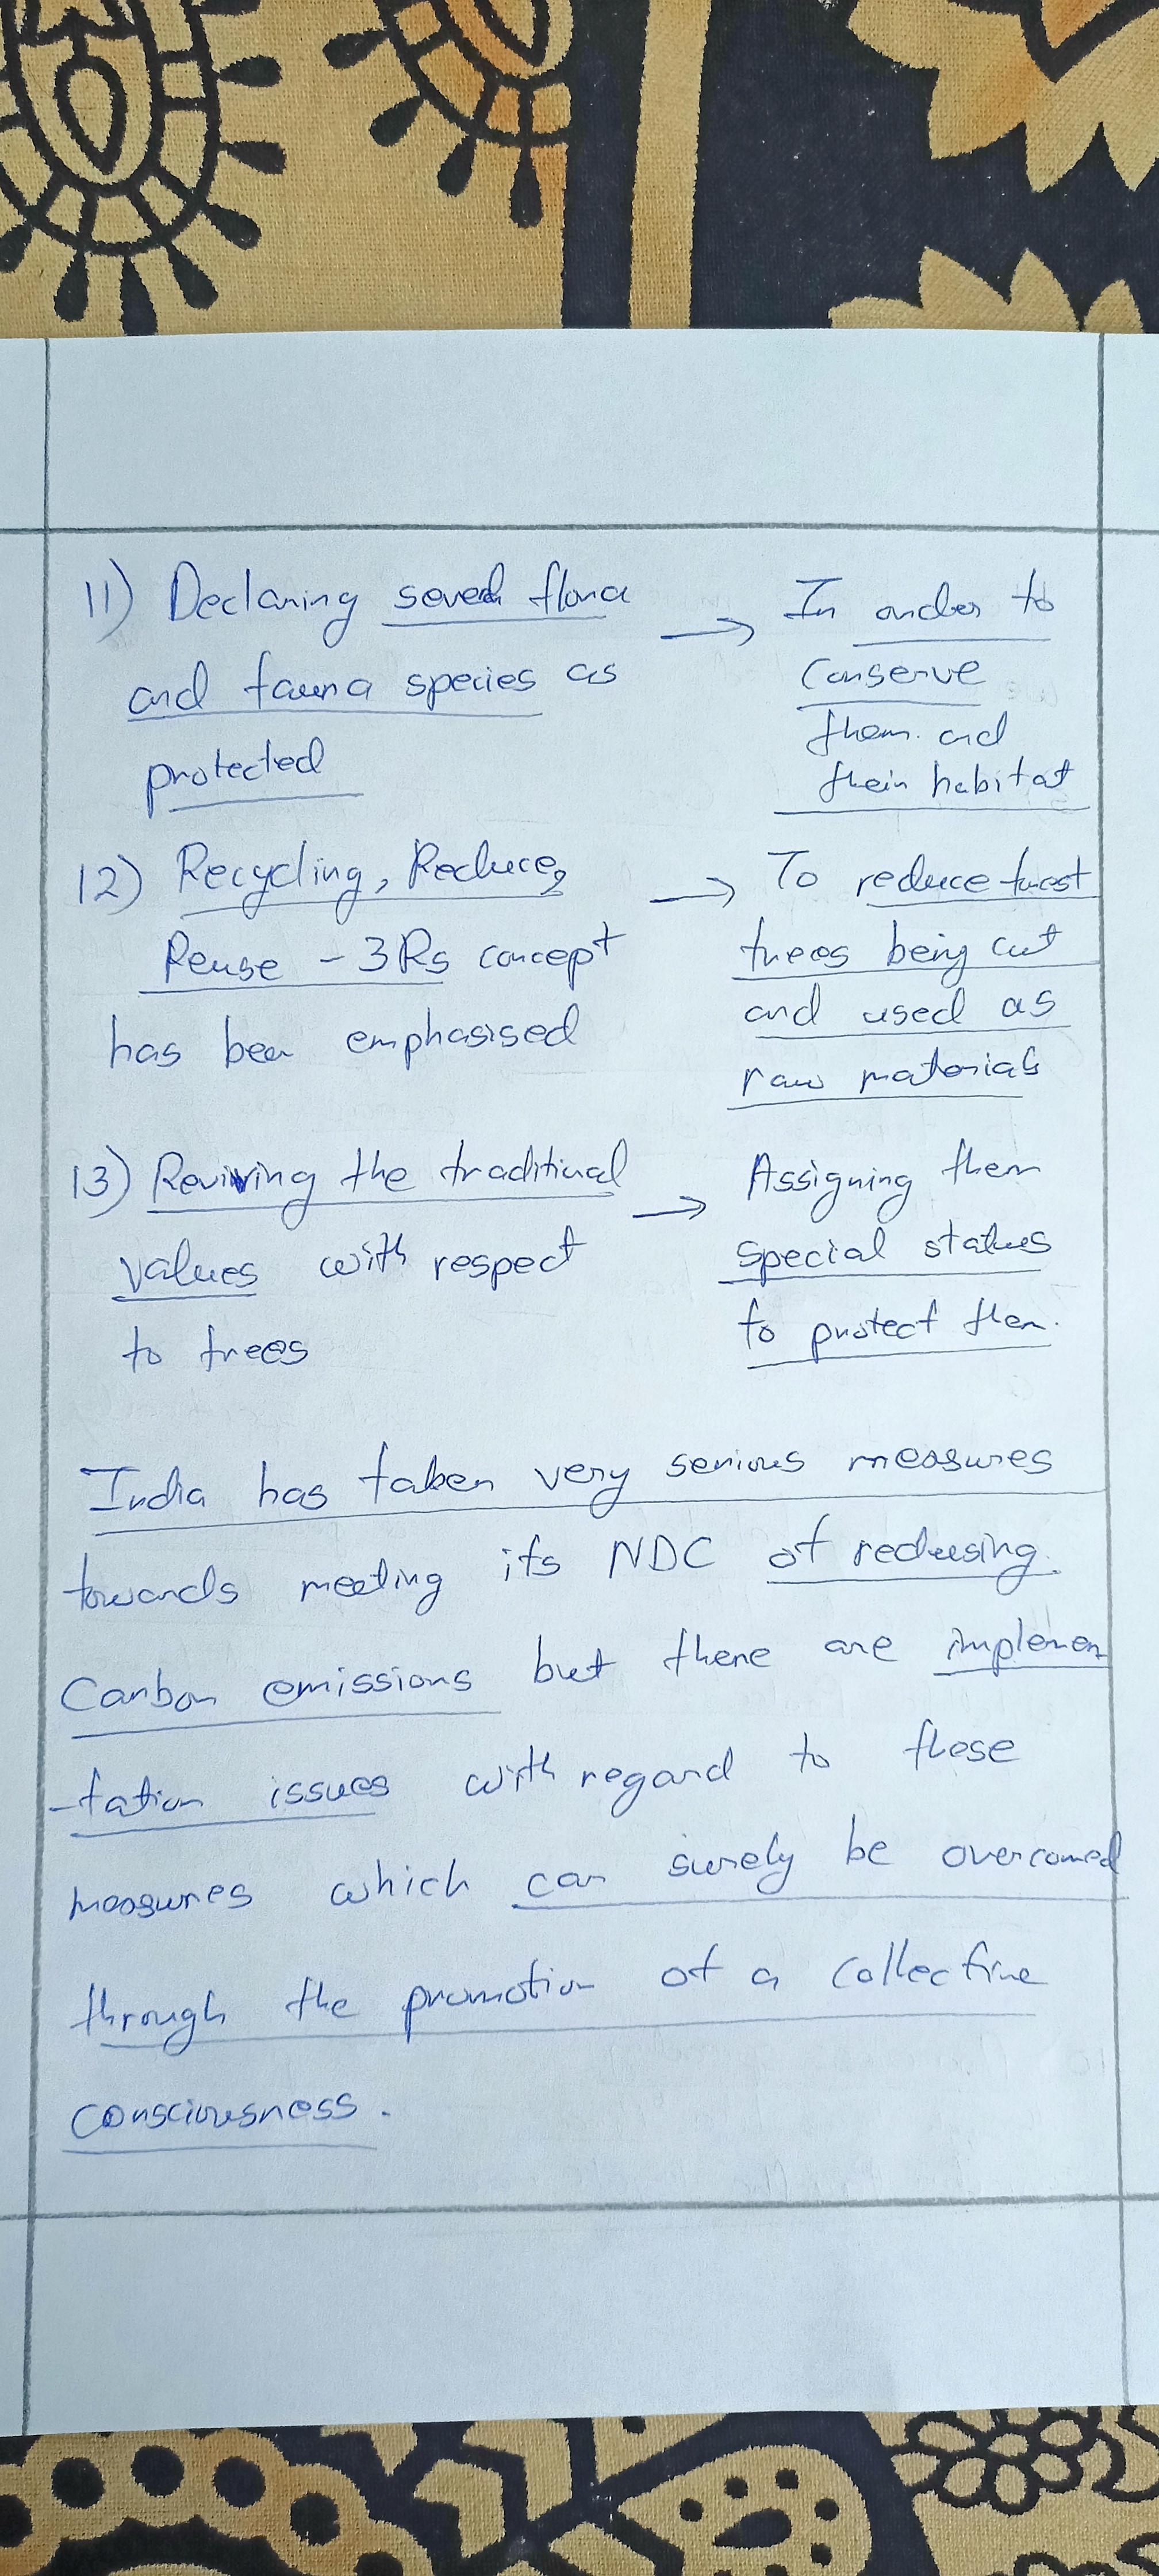 11) Declaring several flora
and fauna species as
protected
→ In order to
conserve
them and
their habitat
12) Recycling, Reduce,
Reuse - 3Rs concept
has been emphasised
→ To reduce
trees being cut
and used as
raw materials
13) Reviving the traditional
values with respect
to trees
→ Assigning them
special status
to protect them.
India has taken very serious measures
towards meeting its NDC of reducing
Carbon emissions but there are implemen
-tation issues with regard to these
measures which can surely be overcomed
through the promotion of a collective
consciousness.